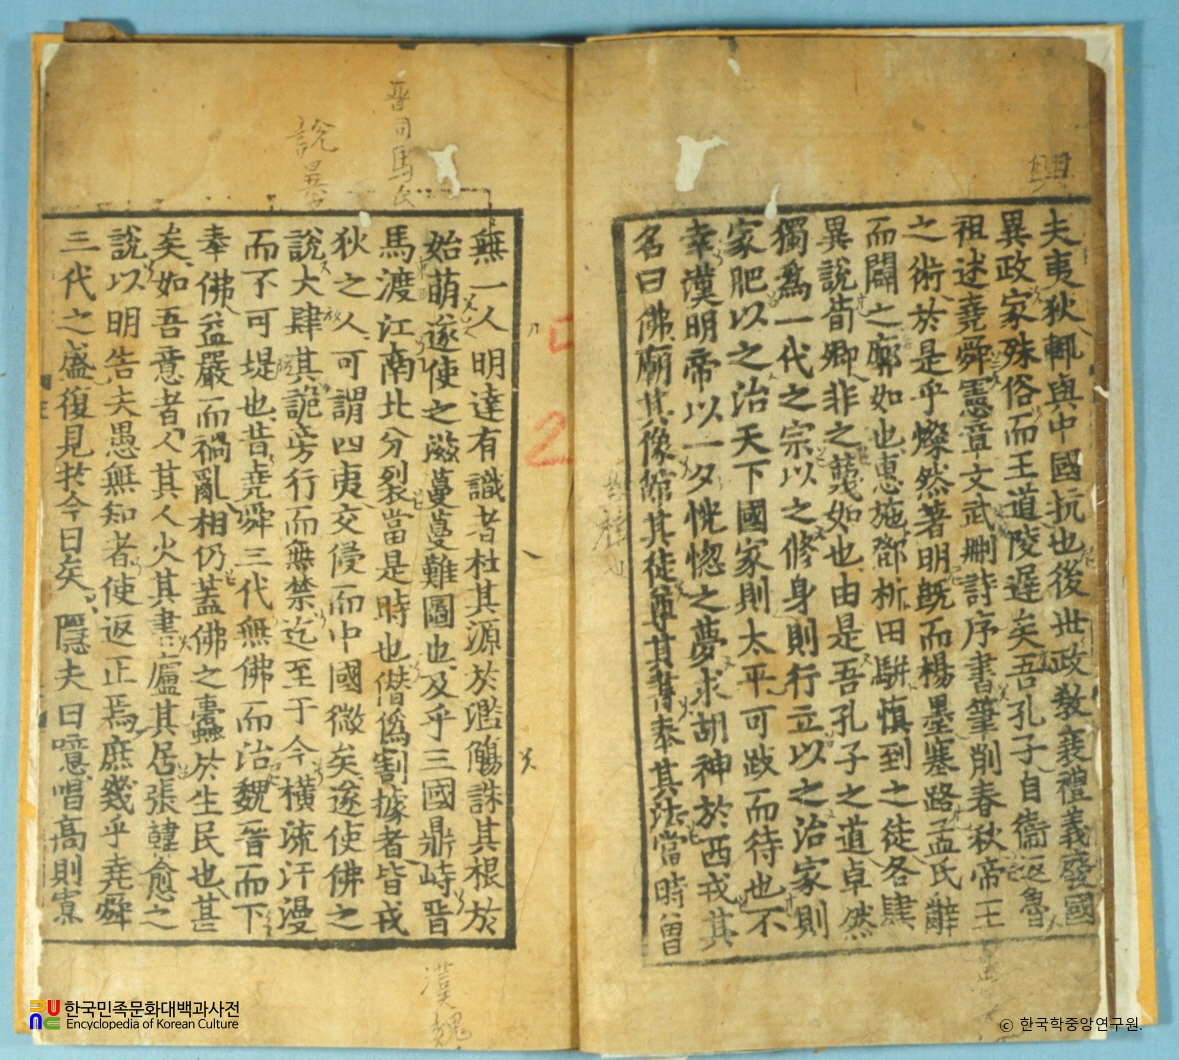 夫夷狄輒與中國抗也後世政敎衰禮義發國
異政家殊俗而王道陵遲矣吾孔子自衞返魯
祖述堯舜憲章文武刪詩序書筆削春秋帝王
之術於是乎燦然著明旣而楊墨塞路孟氏辭
而闢之廓如也惠施鄧析田騈愼到之徒各肆
異說荀卿非之蔑如也由是吾孔子之道卓然
獨爲一代之宗以之修身則行立以之治家則
家肥以之治天下國家則太平可跂而待也不
幸漢明帝以一夕恍惚之夢求胡神於西戎其
名曰佛廟其像館其徒尊其書奉其法當時曾
無一人明達有識者杜其源於濫觴誅其根於
始萌遂使之滋蔓蔓難圖也及乎三國鼎峙晋
馬渡江南北分裂當是時也僭僞割據者皆戎
狄之人可謂四夷交侵而中國微矣遂使佛之
說大肆其詭旁行而無禁迄至于今橫流汗漫
而不可堤也昔堯舜三代無佛而治魏晋而下
奉佛益嚴而禍亂相仍蓋佛之蠹於生民也甚
矣如吾意者人其人火其書廬其居張韓愈之
說以明告夫愚無知者使返正焉庶幾乎堯舜
三代之盛復見於今日矣隱夫曰噫唱高則寡
興
晋司馬氏
說
漢
魏
52
한국민족문화대백과사전
Encyclopedia of Korean Culture
© 한국학중앙연구원.